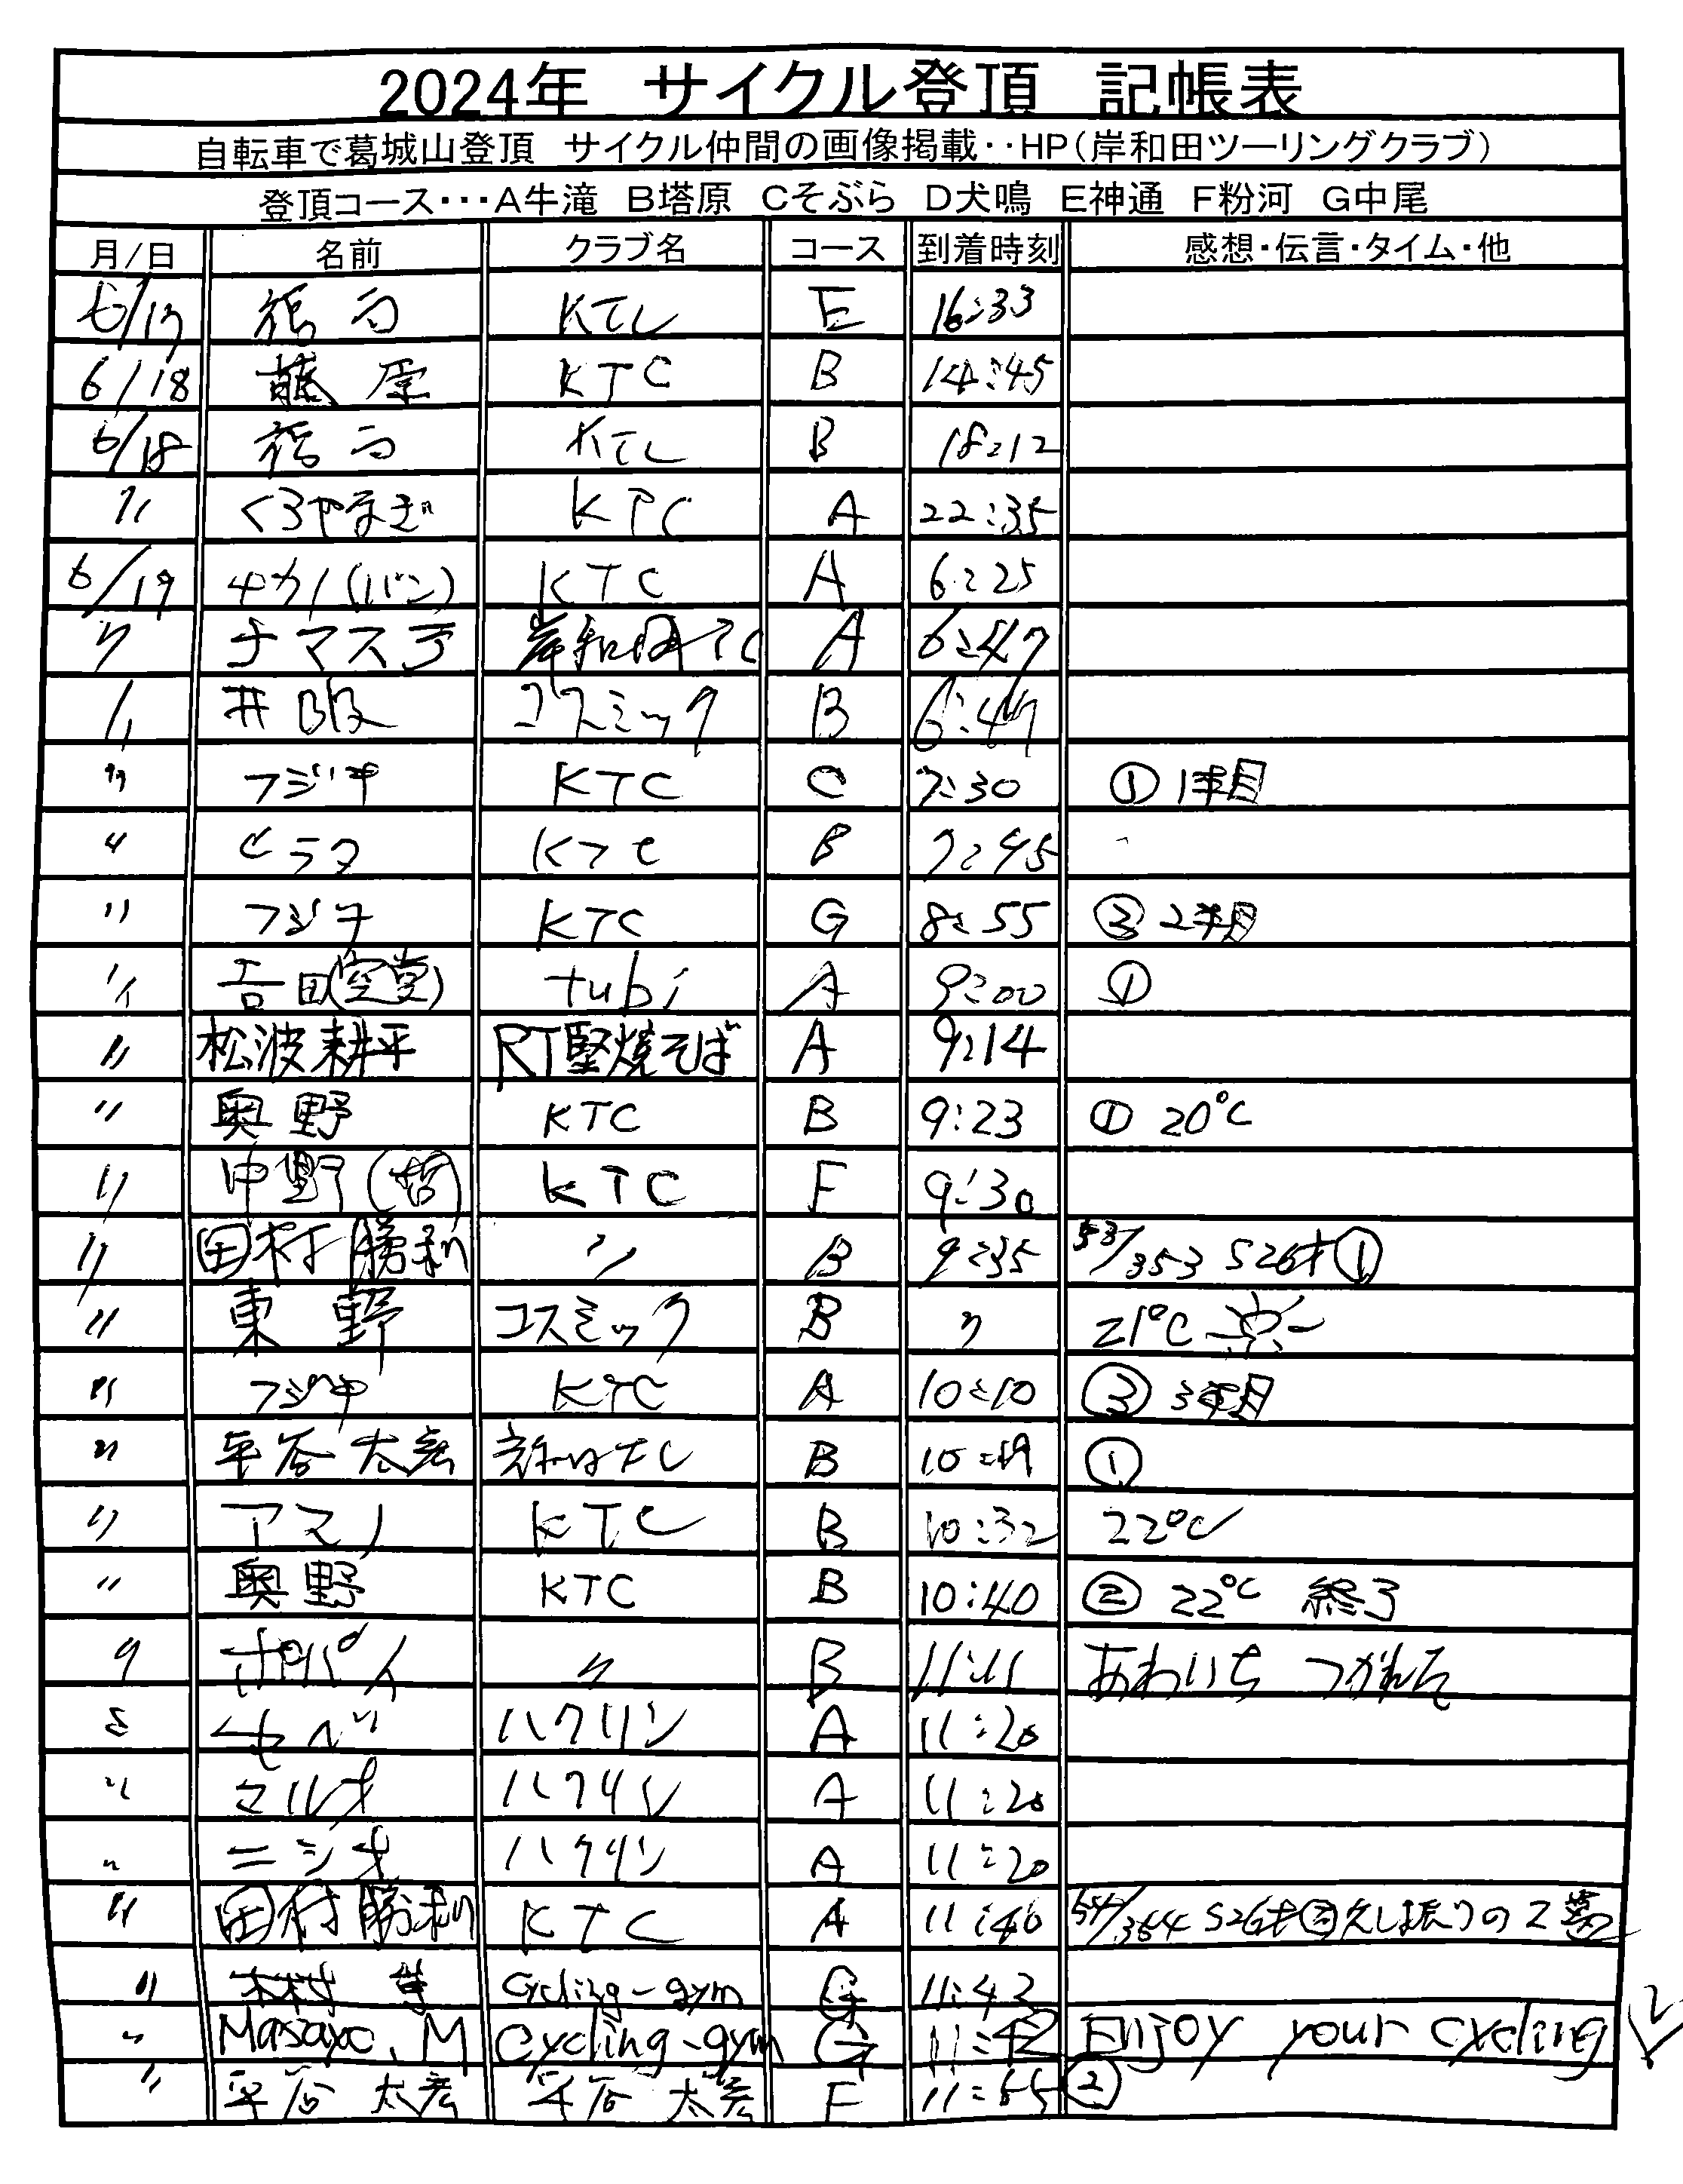 2024年 サイクル登頂 記帳表
自転車で葛城山登頂 サイクル仲間の画像掲載‥HP(岸和田ツーリングクラブ)
登頂コース･･･A牛滝 B塔原 Cそぶら D犬鳴 E神通 F粉河 G中尾
月/日 名前 クラブ名 コース 到着時刻 感想・伝言・タイム・他
6/17 KTC E 16:33
6/18 藤原 KTC B 14:45
6/18 KTC B 18:12
〃 くろやまぎ KTC A 22:35
6/19 ナカノ(パン) KTC A 6:25
〃 ナマステ 岸和田TC A 6:47
〃 井阪 コスミック B 6:47
〃 フジキ KTC C 7:30 ① 1本目
〃 ヒラタ KTC B 7:45
〃 フジキ KTC G 8:55 ② 2本目
〃 吉田(空堂) tubi A 9:00 ①
〃 松波耕平 RT堅焼そば A 9:14
〃 奥野 KTC B 9:23 ① 20℃
〃 中野(哲) KTC F 9:30
〃 田村勝利 〃 B 9:35 53/353 526才①
〃 東野 コスミック B 〃 21℃
〃 フジキ KTC A 10:10 ③ 3本目
〃 平谷太宏 なし B 10:19 ①
〃 アマノ KTC B 10:32 22℃
〃 奥野 KTC B 10:40 ② 22℃ 終了
〃 ポパイ 〃 B 11:11 あわいち つかれた
〃 セベ ハクリン A 11:20
〃 マルオ ハクリン A 11:20
〃 ニシオ ハクリン A 11:20
〃 田村勝利 KTC A 11:40 54/354 526才②久し振りの2葛
〃 木村 Cycling-gym G 11:42
〃 Masayo.M Cycling-gym G 11:42 Enjoy your cycling
〃 平谷太宏 平谷太宏 F 11:55 ②